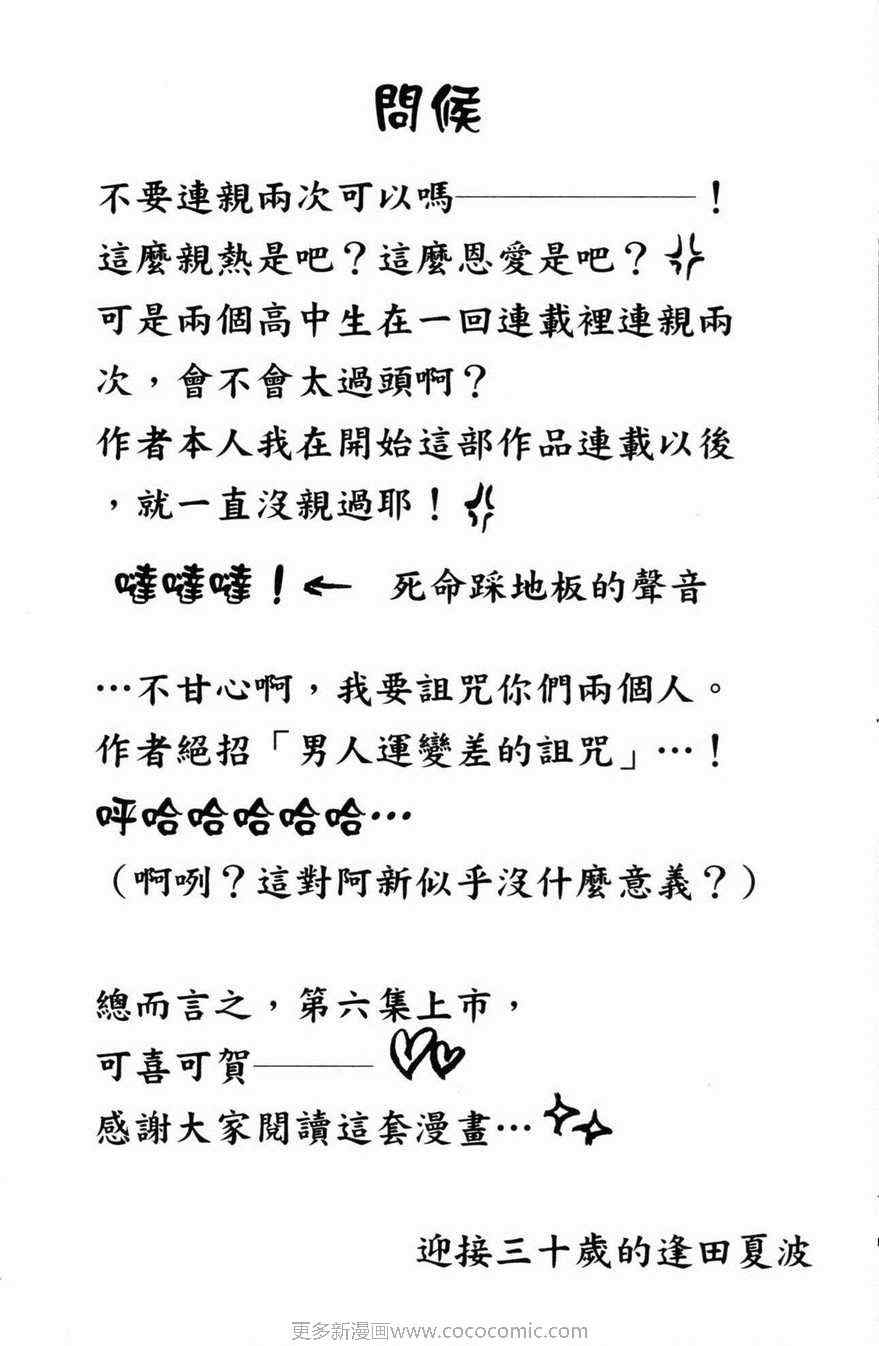 問候
不要連親兩次可以嗎──────！
這麼親熱是吧？這麼恩愛是吧？
可是兩個高中生在一回連載裡連親兩
次，會不會太過頭啊？
作者本人我在開始這部作品連載以後
，就一直沒親過耶！
噠噠噠！← 死命踩地板的聲音
…不甘心啊，我要詛咒你們兩個人。
作者絕招「男人運變差的詛咒」…！
呼哈哈哈哈哈…
（啊咧？這對阿新似乎沒什麼意義？）
總而言之，第六集上市，
可喜可賀───
感謝大家閱讀這套漫畫…
迎接三十歲的逢田夏波
更多新漫画www.cococomic.com